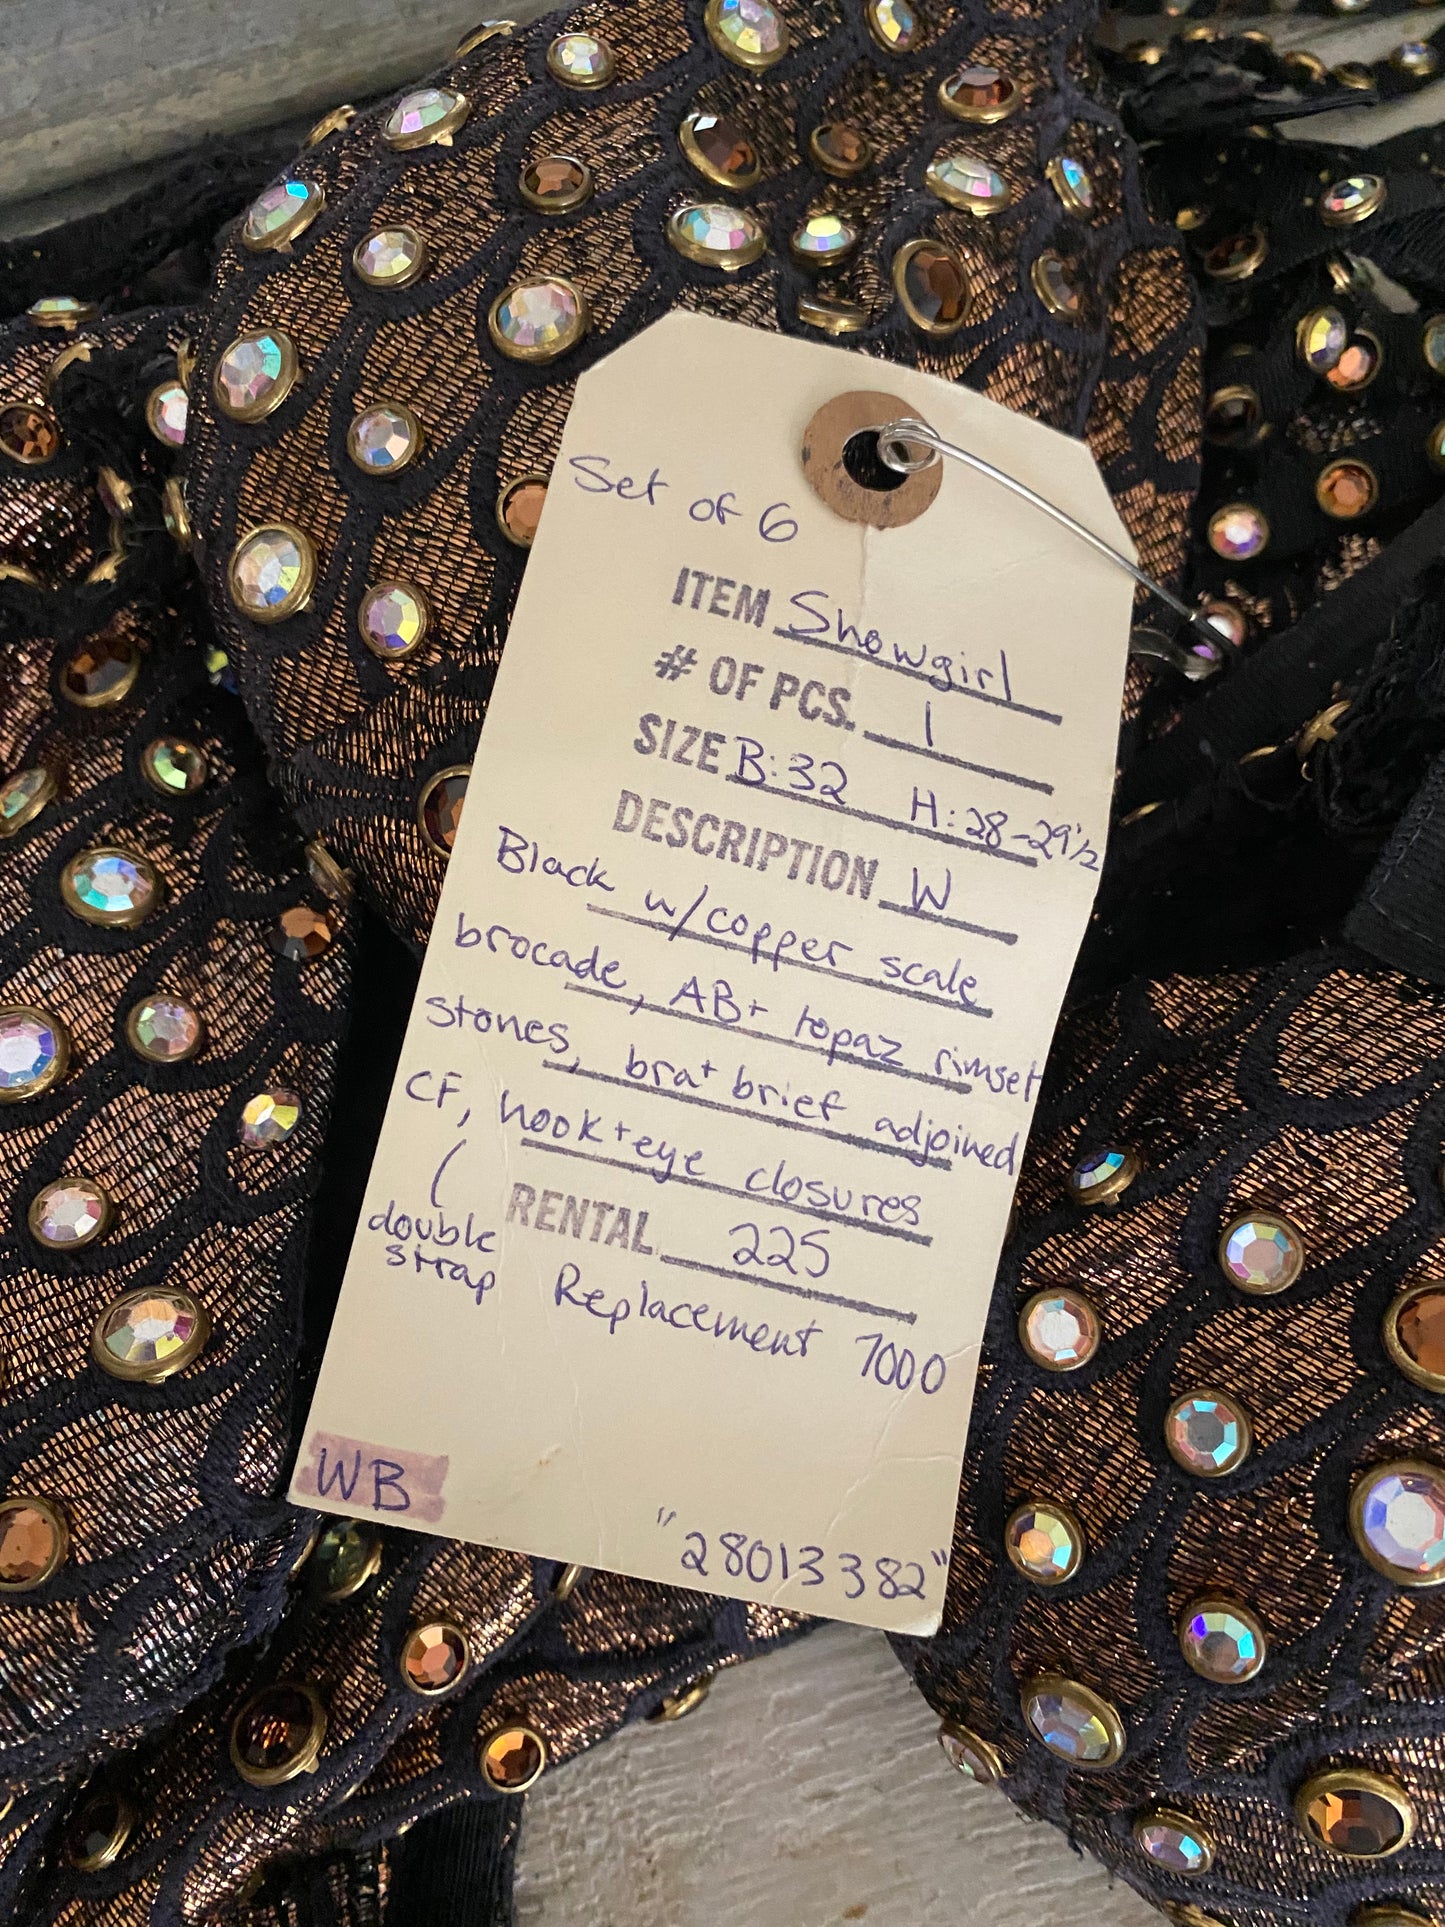 Set of 6
ITEM Showgirl
# OF PCS. 1
SIZE B:32 H:28-29 1/2
DESCRIPTION W
Black w/copper scale
brocade, AB+ topaz rimset
stones, bra+ brief adjoined
CF, hook+eye closures
double
strap
RENTAL 225
Replacement 7000
WB
"28013382"